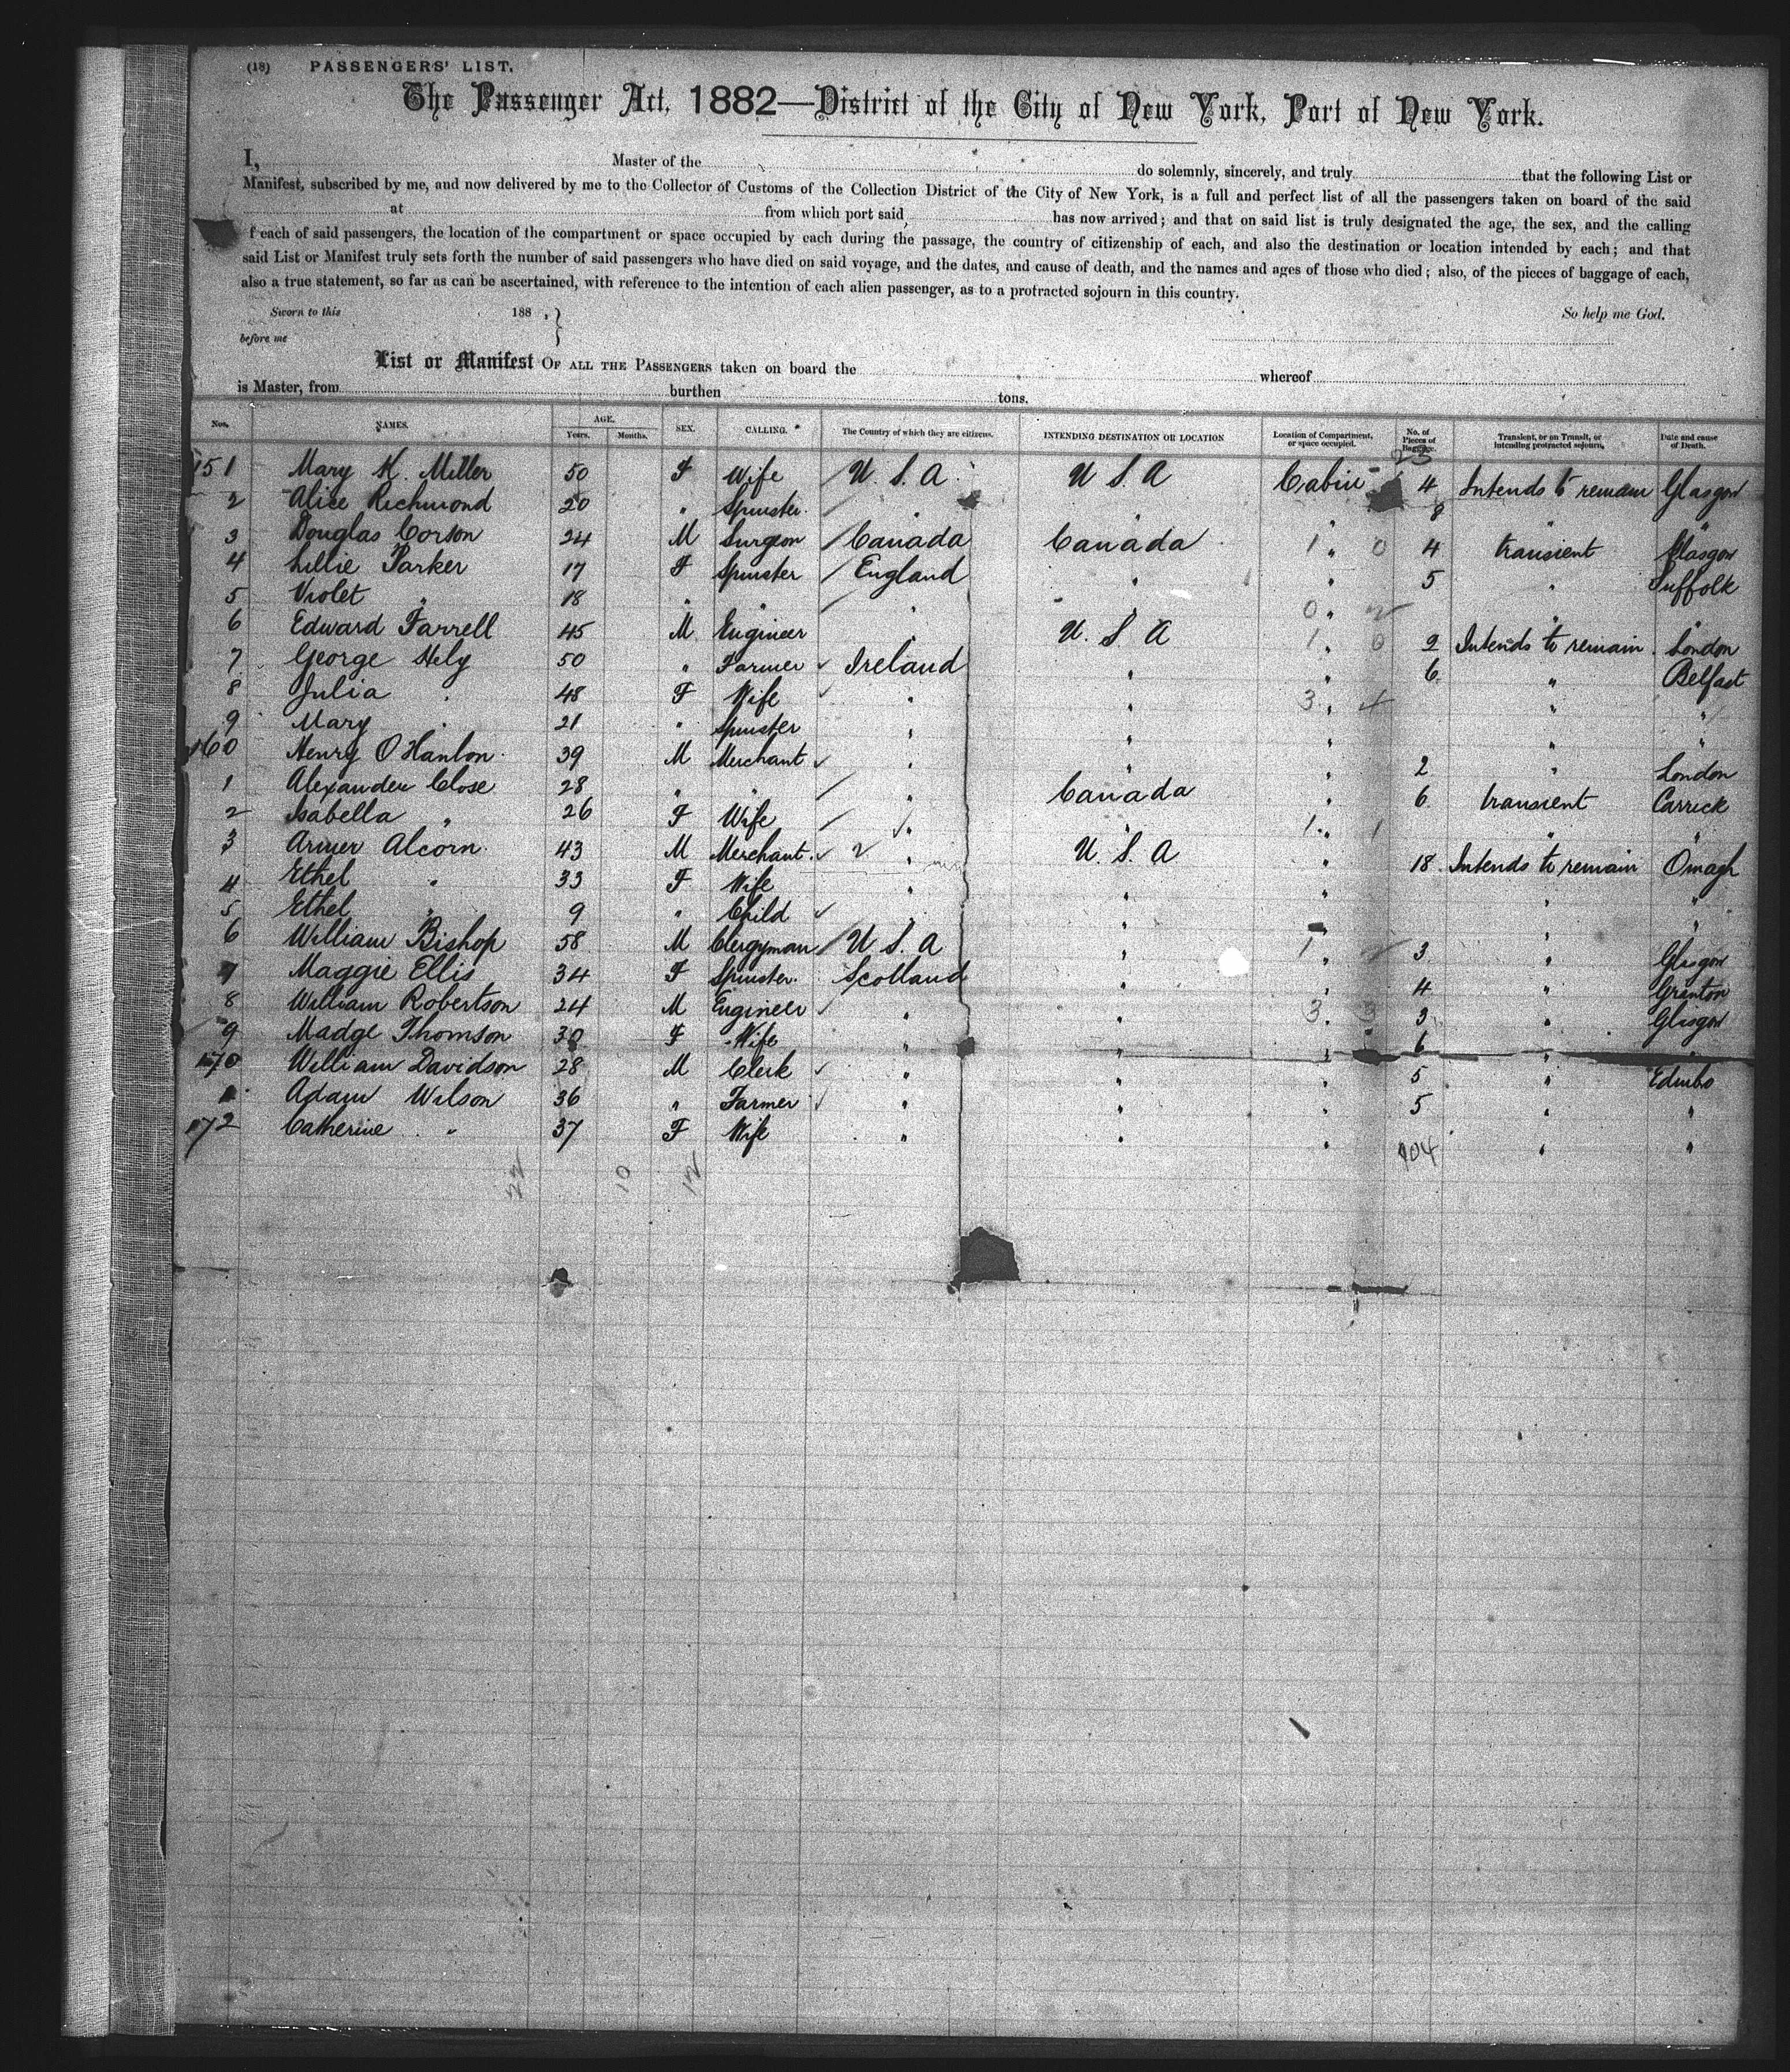 (18) PASSENGERS' LIST.
The Passenger Act, 1882—District of the City of New York, Port of New York.
I, Master of the do solemnly, sincerely, and truly that the following List or
Manifest, subscribed by me, and now delivered by me to the Collector of Customs of the Collection District of the City of New York, is a full and perfect list of all the passengers taken on board of the said
at from which port said has now arrived; and that on said list is truly designated the age, the sex, and the calling
f each of said passengers, the location of the compartment or space occupied by each during the passage, the country of citizenship of each, and also the destination or location intended by each; and that
said List or Manifest truly sets forth the number of said passengers who have died on said voyage, and the dates, and cause of death, and the names and ages of those who died; also, of the pieces of baggage of each,
also a true statement, so far as can be ascertained, with reference to the intention of each alien passenger, as to a protracted sojourn in this country.
Sworn to this 188 , } So help me God.
before me
List or Manifest OF ALL THE PASSENGERS taken on board the whereof
is Master, from burthen tons.
Nos. NAMES. AGE. Years. Months. SEX. CALLING. The Country of which they are citizens. INTENDING DESTINATION OR LOCATION Location of Compartment, or space occupied. No. of Pieces of Baggage. Transient, or on Transit, or intending protracted sojourn. Date and cause of Death.
23
151 Mary K. Miller 50 F Wife U. S. A. U S A Cabin 4 Intends to remain Glasgow
2 Alice Richmond 20 " Spinster " " " 8 " "
3 Douglas Corson 24 M Surgeon Canada Canada 1 " 0 4 transient Glasgow
4 Lillie Parker 17 F Spinster England " " 5 " Suffolk
5 Violet " 18 " " " " 0 " 2 " "
6 Edward Farrell 45 M Engineer " U. S. A 1 " 0 2 Intends to remain London
7 George Hely 50 " Farmer Ireland " " 6 " Belfast
8 Julia " 48 F Wife " " 3 " 4 " "
9 Mary " 21 " Spinster " " " " "
160 Henry O'Hanlon 39 M Merchant " " " 2 " London
1 Alexander Close 28 " " " Canada " 6 transient Carrick
2 Isabella " 26 F Wife " " 1 " 1 " "
3 Armer Alcorn 43 M Merchant " U. S. A " 18 Intends to remain Omagh
4 Ethel " 33 F Wife " " " " "
5 Ethel " 9 " Child " " " " "
6 William Bishop 58 M Clergyman U S. A " 1 " 3 " Glasgow
7 Maggie Ellis 34 F Spinster Scotland " " 4 " Granton
8 William Robertson 24 M Engineer " " 3 " 3 3 " Glasgow
9 Madge Thomson 30 F Wife " " " 6 " "
170 William Davidson 28 M Clerk " " " 5 " Edinbo
1 Adam Wilson 36 " Farmer " " " 5 " "
172 Catherine " 37 F Wife " " " " "
104
22 10 12